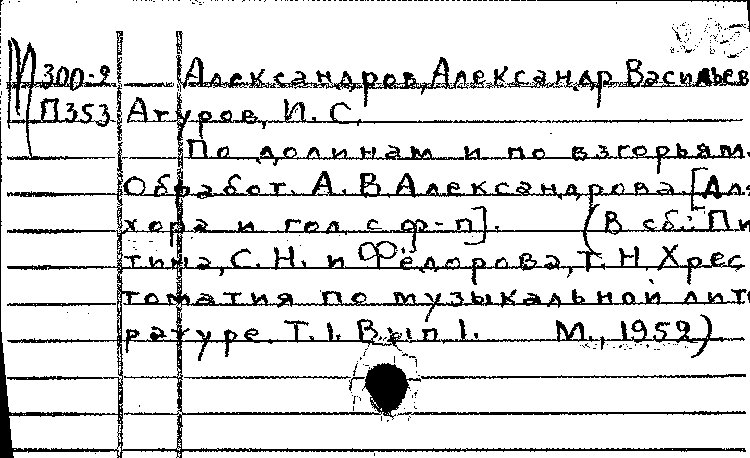 300-2 Александров, Александр Васильев
П353 Атуров, И. С.
По долинам и по взгорьям.
Обработ. А. В. Александрова. [Для
хора и гол. с ф-п]. (В сб.: Пи
тина, С. Н. и Фёдорова, Т. Н. Хрес
томатия по музыкальной лите
ратуре. Т. 1. Вып. 1. М., 1952)